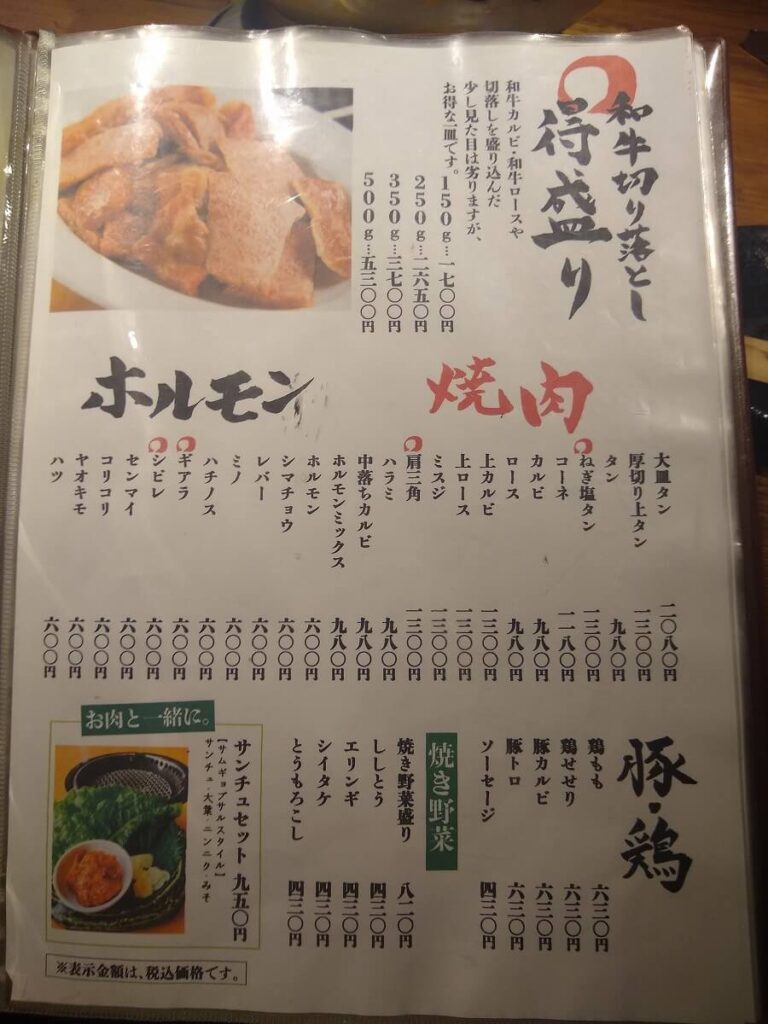 和牛切り落とし
得盛り
和牛カルビ・和牛ロースや
切落しを盛り込んだ
少し見た目は劣りますが、
お得な一皿です。
150g…一七〇〇円
250g…二六五〇円
350g…三七〇〇円
500g…五三〇〇円
焼肉
大皿タン 二〇八〇円
厚切り上タン 一三〇〇円
タン 九八〇円
ねぎ塩タン 一三〇〇円
コーネ 一一八〇円
カルビ 九八〇円
ロース 九八〇円
上カルビ 一三〇〇円
上ロース 一三〇〇円
ミスジ 一三〇〇円
肩三角 一三〇〇円
ハラミ 九八〇円
中落ちカルビ 九八〇円
ホルモン
ホルモンミックス 九八〇円
ホルモン 六〇〇円
シマチョウ 六〇〇円
レバー 六〇〇円
ミノ 六〇〇円
ハチノス 六〇〇円
ギアラ 六〇〇円
シビレ 六〇〇円
センマイ 六〇〇円
コリコリ 六〇〇円
ヤオキモ 六〇〇円
ハツ 六〇〇円
豚・鶏
鶏もも 六三〇円
鶏せせり 六三〇円
豚カルビ 六三〇円
豚トロ 六三〇円
ソーセージ 四三〇円
焼き野菜
焼き野菜盛り 八二〇円
ししとう 四三〇円
エリンギ 四三〇円
シイタケ 四三〇円
とうもろこし 四三〇円
お肉と一緒に。
サンチュセット 九五〇円
【サムギョプサルスタイル】
サンチュ・大葉・ニンニク・みそ
※表示金額は、税込価格です。